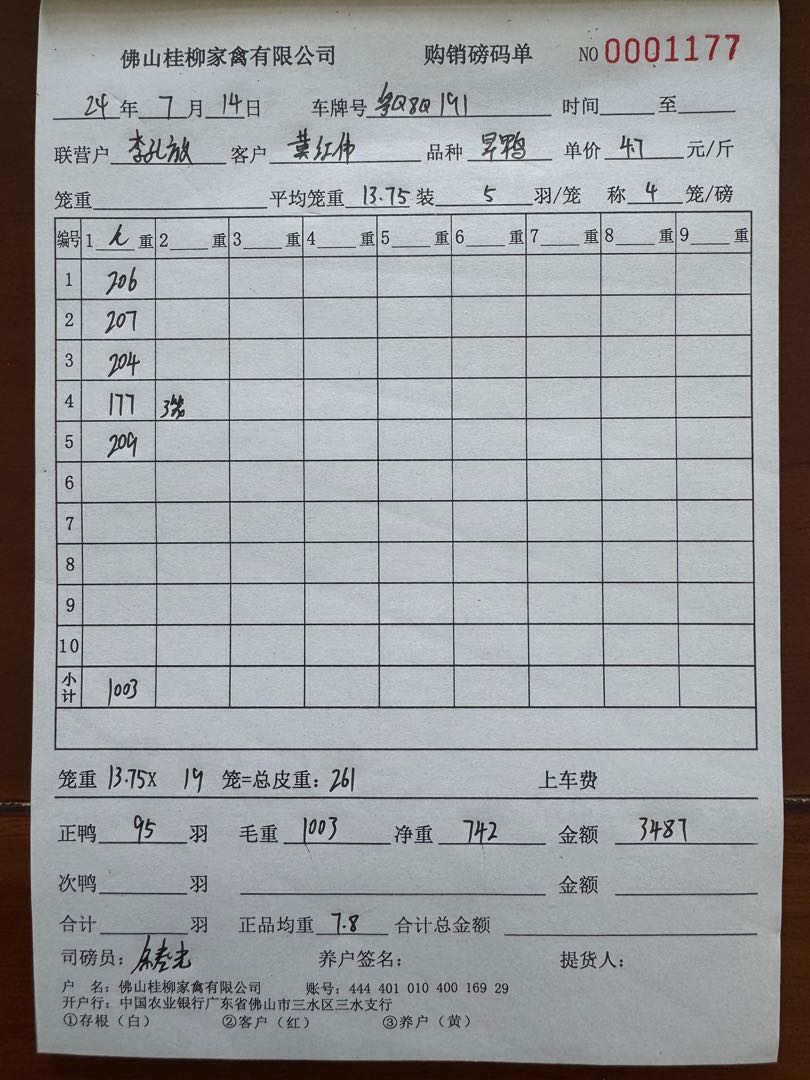 佛山桂柳家禽有限公司 购销磅码单 NO 0001177
24 年 7 月 14 日 车牌号 粤Q8Q191 时间 至
联营户 李孔放 客户 黄红伟 品种 旱鸭 单价 4.7 元/斤
笼重 平均笼重 13.75 装 5 羽/笼 称 4 笼/磅
编号 1 重 2 重 3 重 4 重 5 重 6 重 7 重 8 重 9 重
1 206
2 207
3 204
4 177 3笼
5 209
6
7
8
9
10
小计 1003
笼重 13.75X 19 笼=总皮重: 261 上车费
正鸭 95 羽 毛重 1003 净重 742 金额 3487
次鸭 羽 金额
合计 羽 正品均重 7.8 合计总金额
司磅员: 养户签名: 提货人:
户 名: 佛山桂柳家禽有限公司 账号: 444 401 010 400 169 29
开户行: 中国农业银行广东省佛山市三水区三水支行
①存根(白) ②客户(红) ③养户(黄)